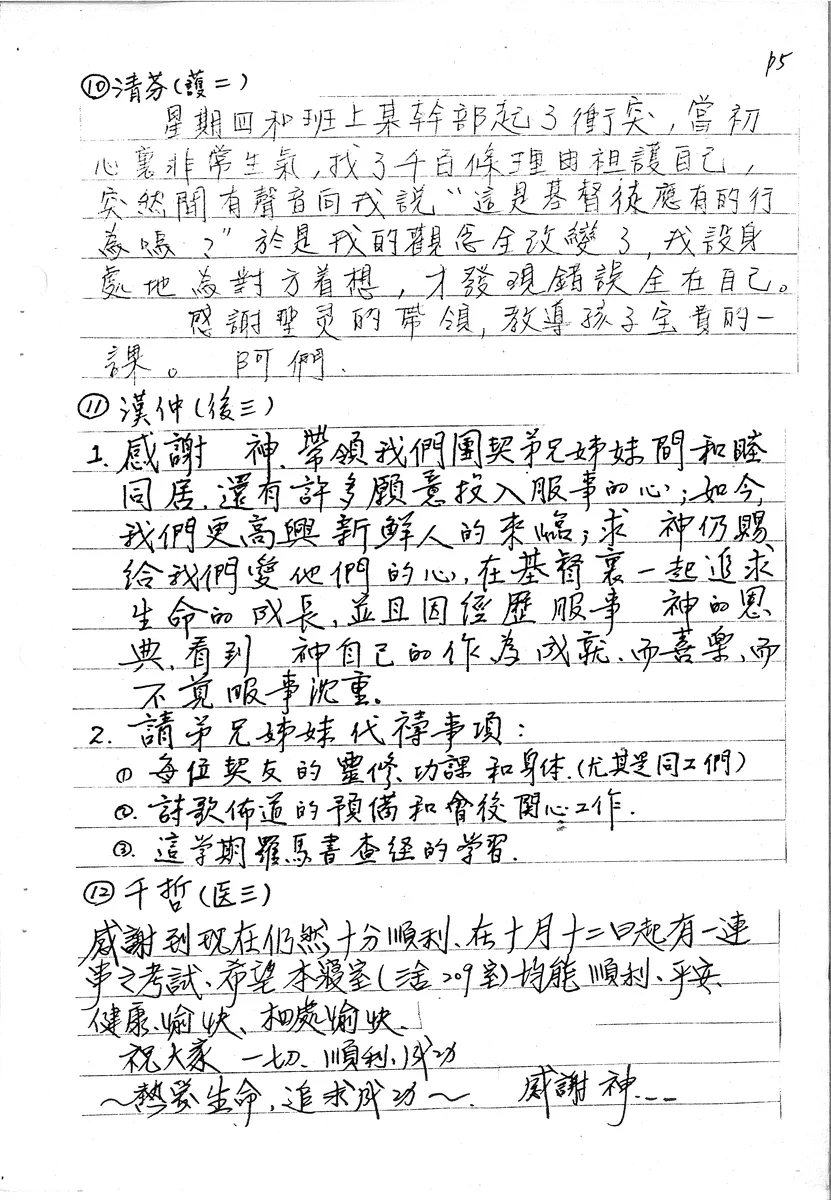 p5
⑩清芬(護二)
星期四和班上某幹部起了衝突,當初
心裏非常生氣,找了千百條理由袒護自己,
突然聞有聲音向我說“這是基督徒應有的行
為嗎?”於是我的觀念全改變了,我設身
處地為對方着想,才發現錯誤全在自己。
感謝聖灵的帶領,教導孩子宝貴的一
課。 阿們.
⑪漢仲(後三)
1. 感謝 神、帶領我們團契弟兄姊妹間和睦
同居,還有許多願意投入服事的心;如今,
我們更高興新鮮人的來臨;求 神仍賜
給我們愛他們的心,在基督裏一起追求
生命的成長,並且因經歷服事 神的恩
典,看到 神自己的作為成就、而喜樂、而
不覚服事沈重.
2. 請弟兄姊妹代禱事項:
①. 每位契友的靈修、功課和身体.(尤其是同工們)
②. 詩歌佈道的預備和會後関心工作.
③. 這学期羅馬書查经的学習.
⑫千哲(医三)
感謝到現在仍然十分順利、在十月十二日起有一連
串之考試、希望本寢室(舍209室)均能順利、平安、
健康、愉快、相處愉快、
祝大家 一切、順利、成功
～熱愛生命,追求成功～. 感謝神---